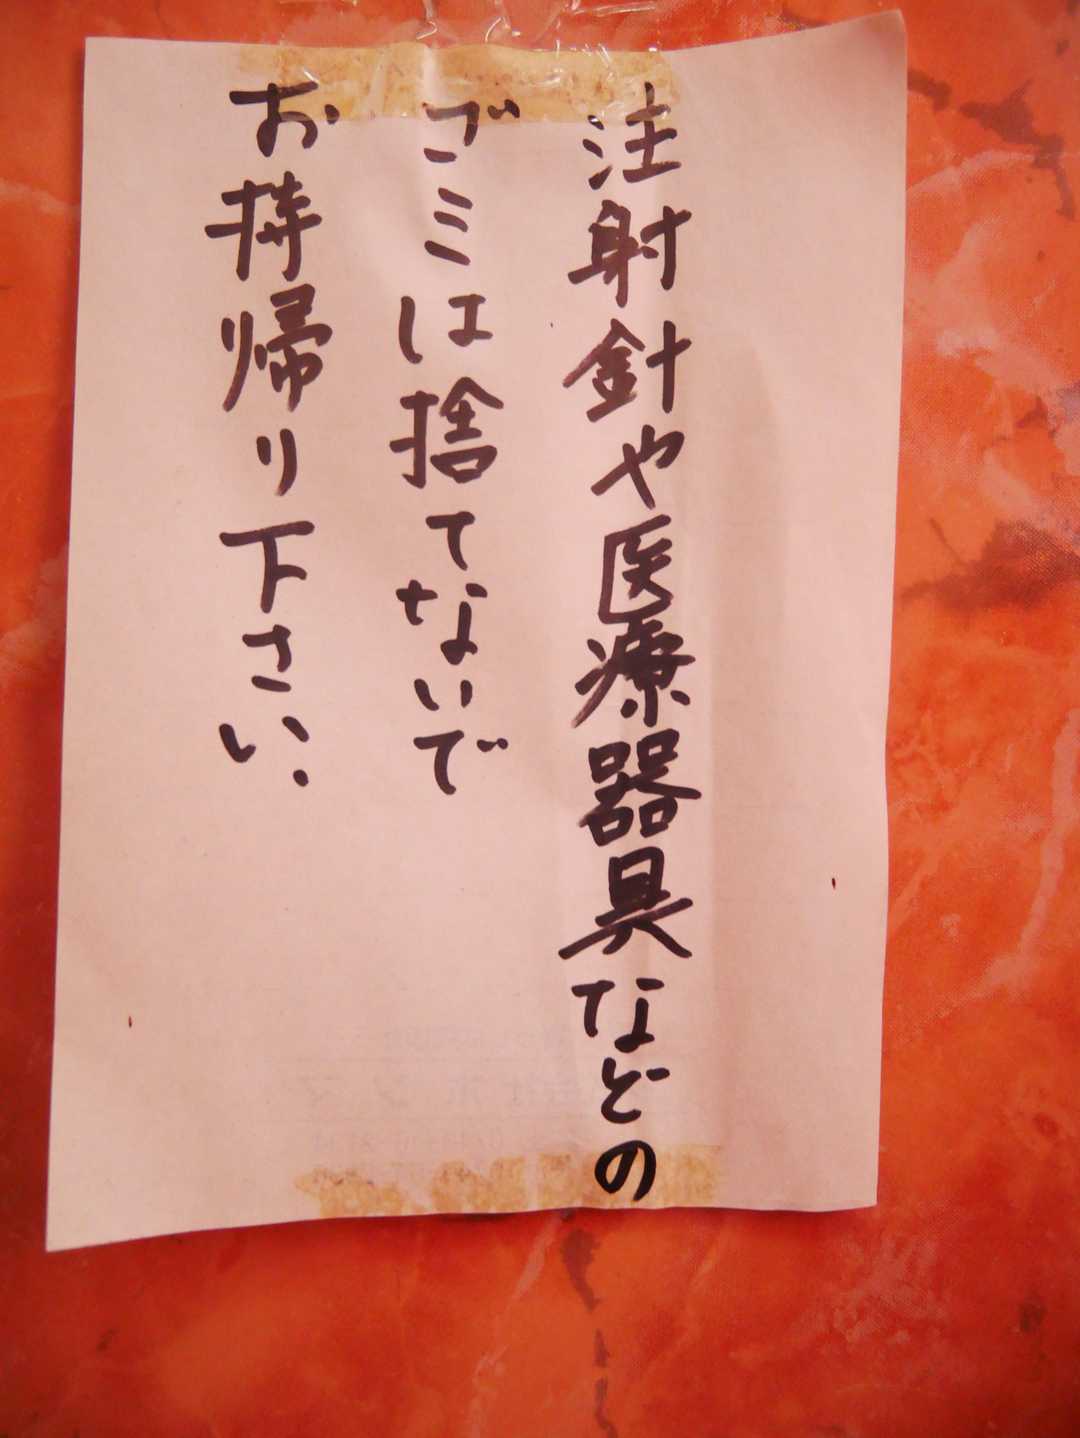 注射針や医療器具などの
ゴミは捨てないで
お持帰り下さい.